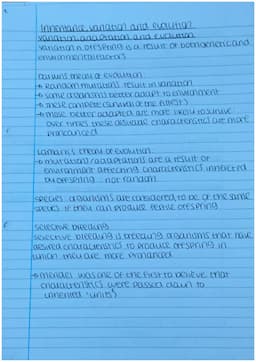 Inheritance, variation and evolution
variation, adaptation and evolution
variation in offspring is a result of both genetic and
environmental factors
Darwins theory of evolution:
→ Random mutations result in variation
→ some organisms better adapt to environment
→ these compete (survival of the fittest)
→ those better adapted are more likely to survive
over times these desirable characteristics are more
pronounced
Lamarks theory of evolution:
→ mutations / adaptations are a result of
environment affecting characteristics inherited
by offspring not random
species: organisms are considered to be of the same
species if they can produce fertile offspring
selective breeding
selective breeding is breeding organisms that have
desired characteristics to produce offspring in
which they are more pronounced
→ mendel was one of the first to believe that
characteristics were passed down to
inherited 'units'